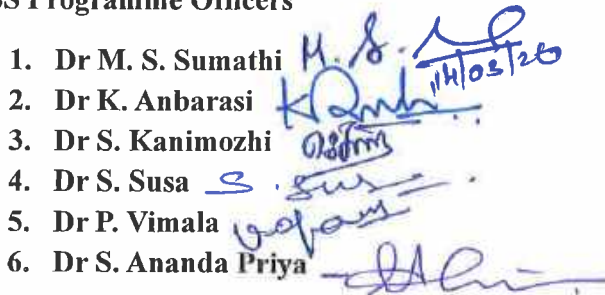 SS Programme Officers
1. Dr M. S. Sumathi M. S. 14/03/26
2. Dr K. Anbarasi
3. Dr S. Kanimozhi
4. Dr S. Susa S. Sus
5. Dr P. Vimala
6. Dr S. Ananda Priya